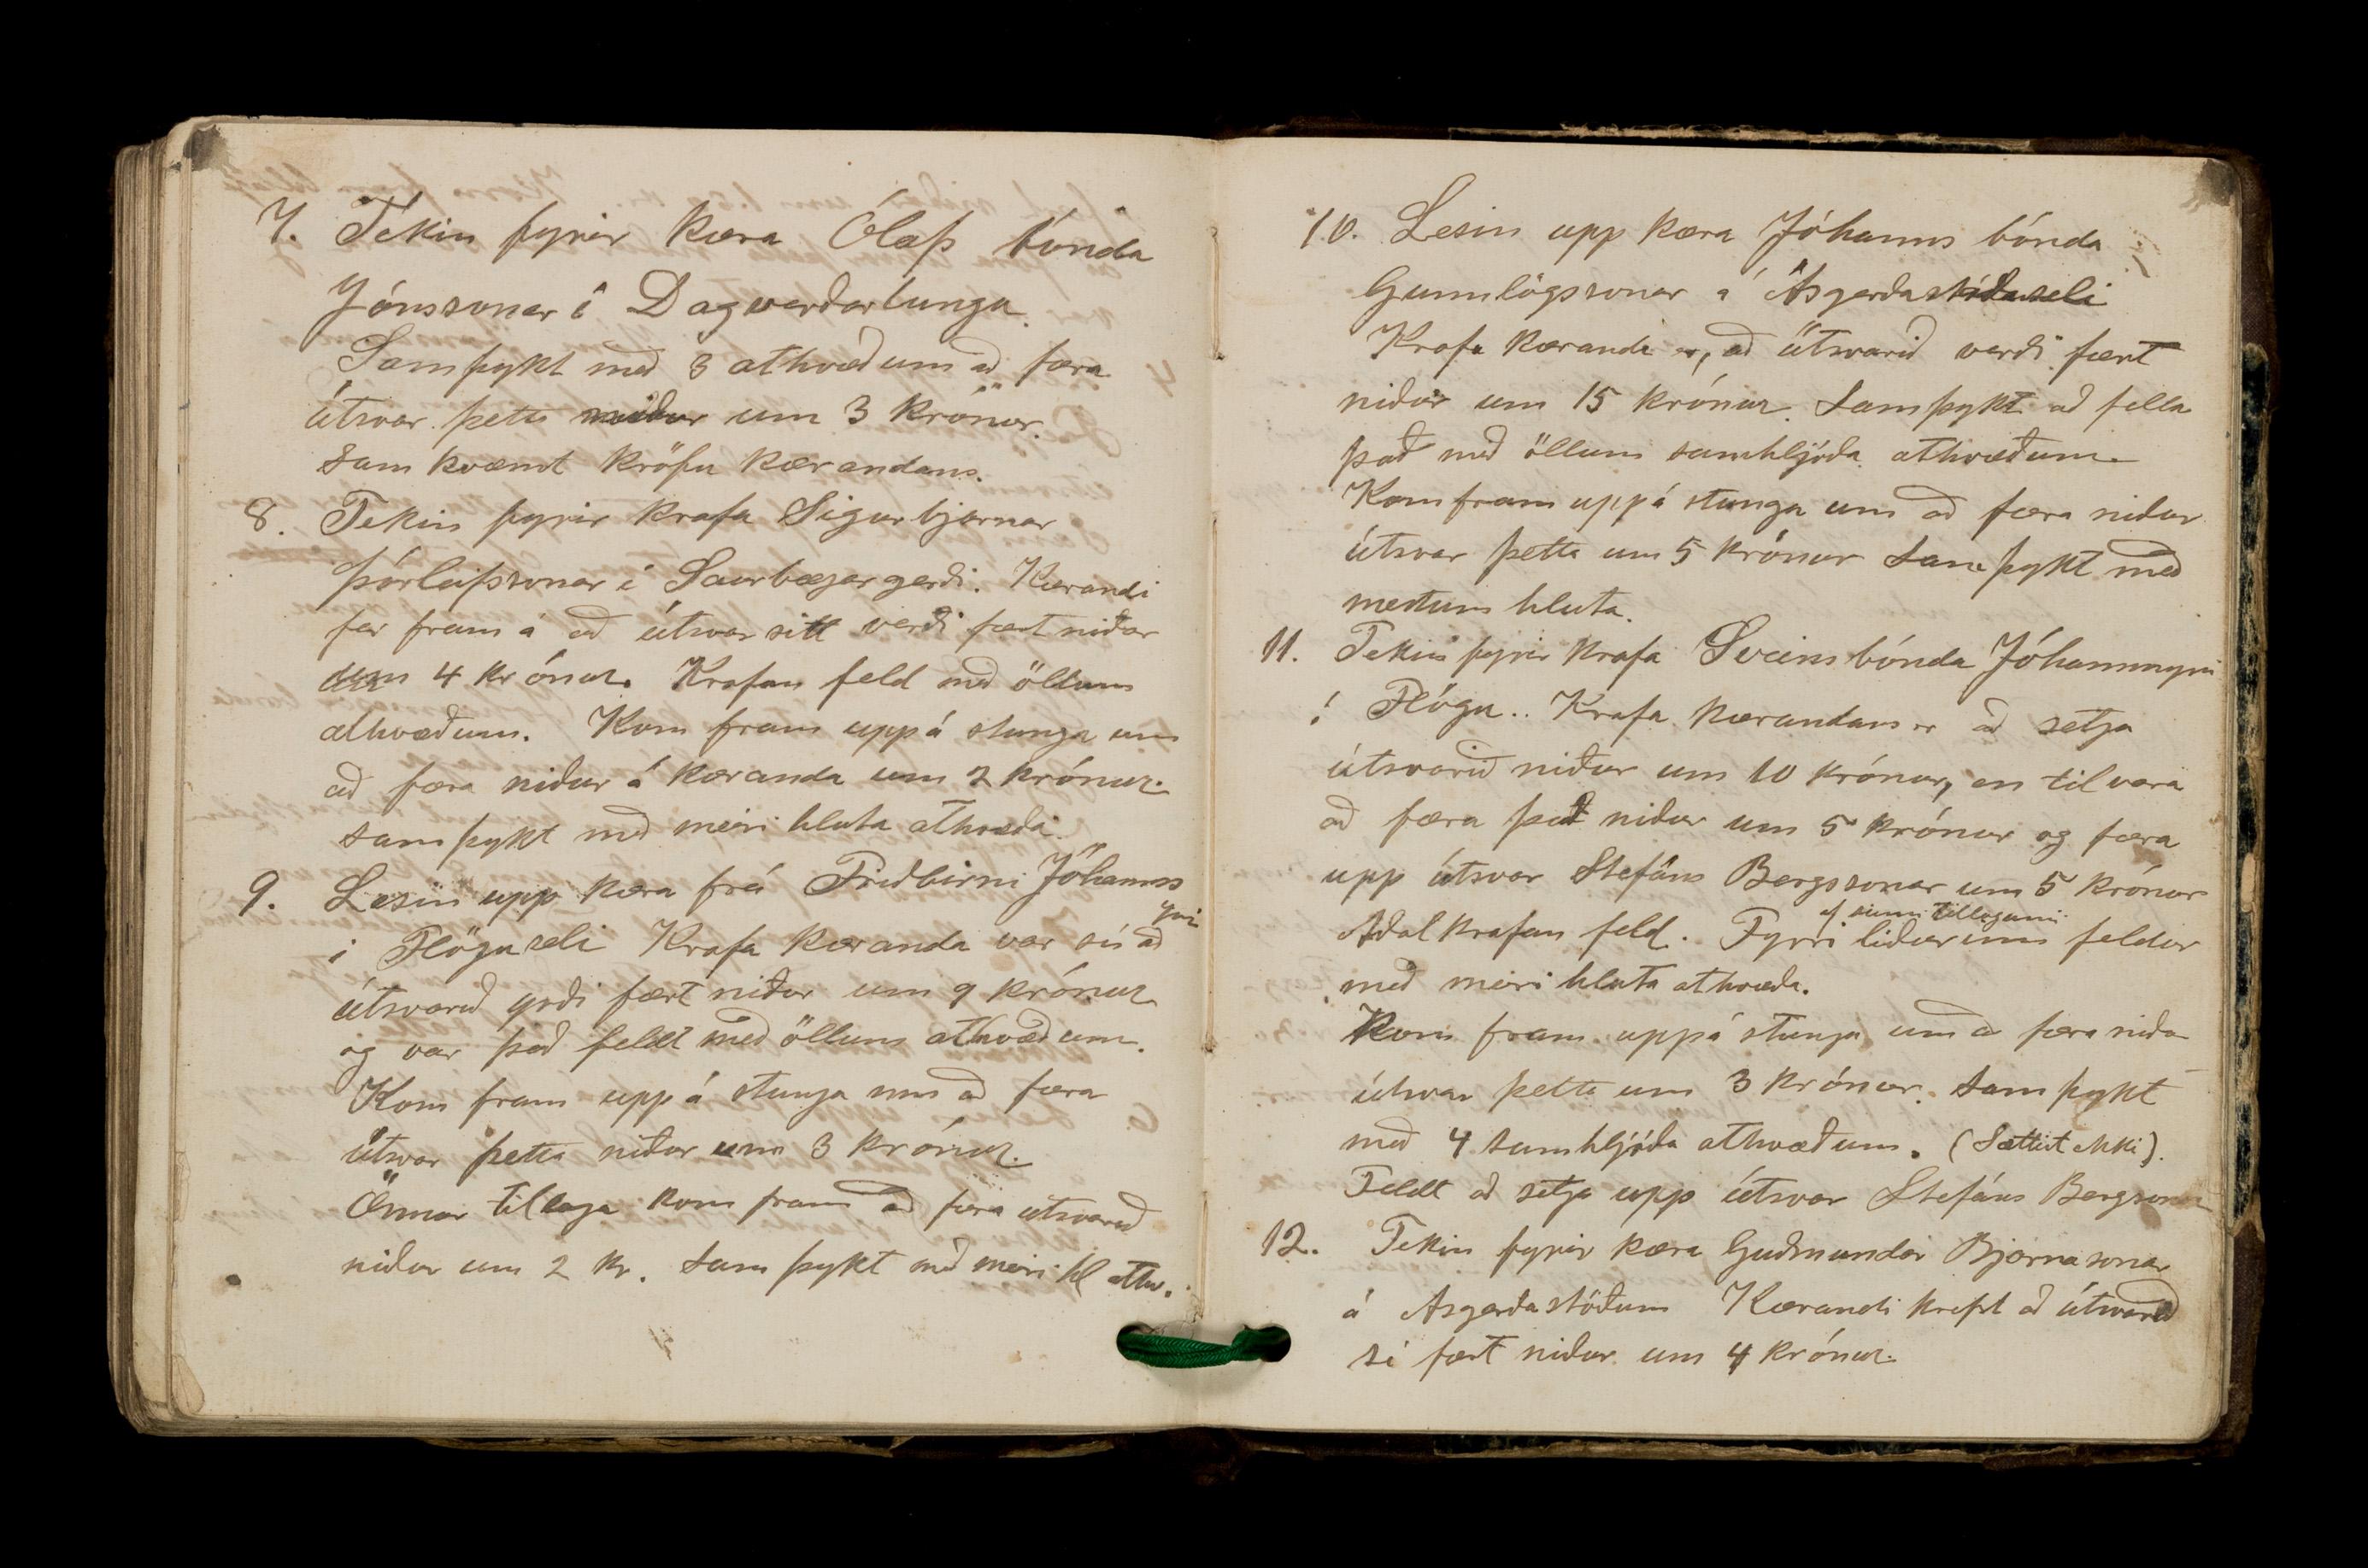 7. Tekin fyrir kæra Ólafs bónda
Jónssonar í Dagverðartungu.
Samþykt með 3 athvæðum að færa
útsvar þetta niður um 3 krónur.
Samkvæmt kröfu kærandans.
8. Tekin fyrir krafa Sigurbjarnar
Þórleifssonar í Saurbæjargerði. Kærandi
fer fram á að útsvar sitt verði fært niður
um 4 krónur. Krafan feld með öllum
athvæðum. Kom fram uppá stunga um
að færa niður á kæranda um 2 krónur.
samþykt með meiri hluta athvæða.
9. Lesin upp kæra frá Friðbirni Jóhanns
yni
í Flöguseli Krafa kæranda var sú að
útsvarið yrði fært niður um 9 krónur
og var það feldt með öllum athvæðum.
Kom fram uppá stunga um að færa
útsvar þetta niður um 3 krónur.
Önnur tillaga kom fram að færa útsvarið
niður um 2 kr. Samþykt með meiri hl athv.
10. Lesin upp kæra Jóhanns bónda
Gunnlögssonar á Ásgerðastaðaseli
Krafa kæranda er, að útsvarið verði fært
niður um 15 krónur. Samþykt að fella
það með öllum samhljóða athvæðum.
Kom fram uppá stunga um að færa niður
útsvar þetta um 5 krónur Samþykt með
mestum hluta.
11. Tekin fyrir krafa Sveins bónda Jóhannsyni
í Flögu.. Krafa kærandans er að setja
útsvarið niður um 10 krónur, en til vara
að færa það niður um 5 krónur og færa
upp útsvar Stefáns Bergssonar um 5 krónur
af sinni tillögunni
Aðal krafan feld. Fyrri liðurinn feldur
með meiri hluta athvæða.
Kom fram uppá stunga um að færa niður
útsvar þetta um 3 krónur. Samþykt
með 4 samhljóða athvæðum. (Sættist ekki).
Feldt að setja upp útsvar Stefáns Bergssonar
12. Tekin fyrir kæra Guðmundar Bjarnasonar
á Asgerðastöðum Kærandi krefst að útsvarið
sé fært niður um 4 krónur.